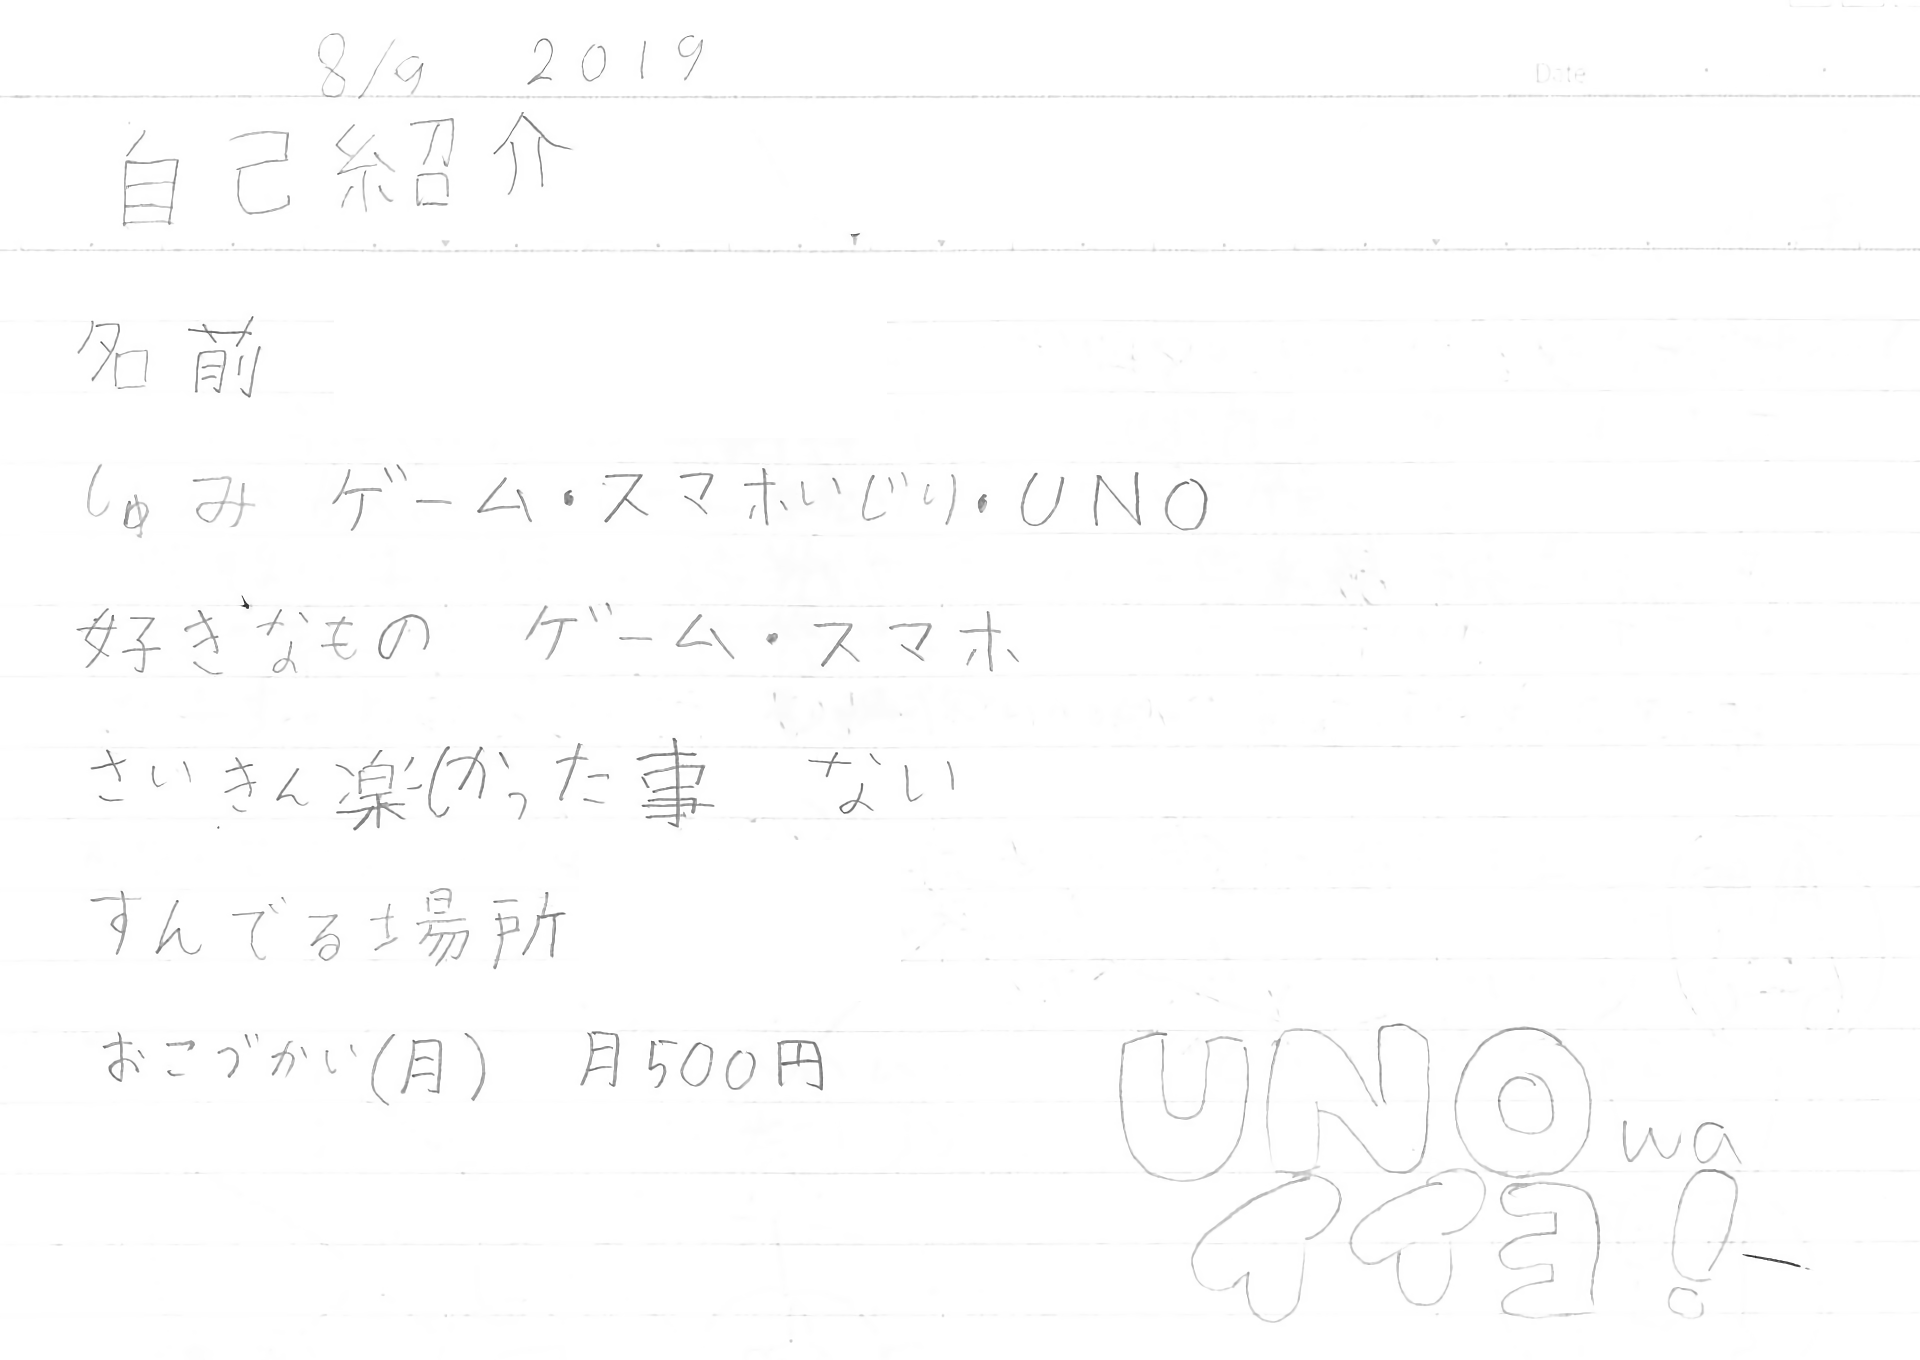 8/9 2019
Date
自己紹介
名前
しゅみ ゲーム・スマホいじり・UNO
好きなもの ゲーム・スマホ
さいきん楽しかった事 ない
すんでる場所
おこづかい(月) 月500円
UNO wa
イイヨ!